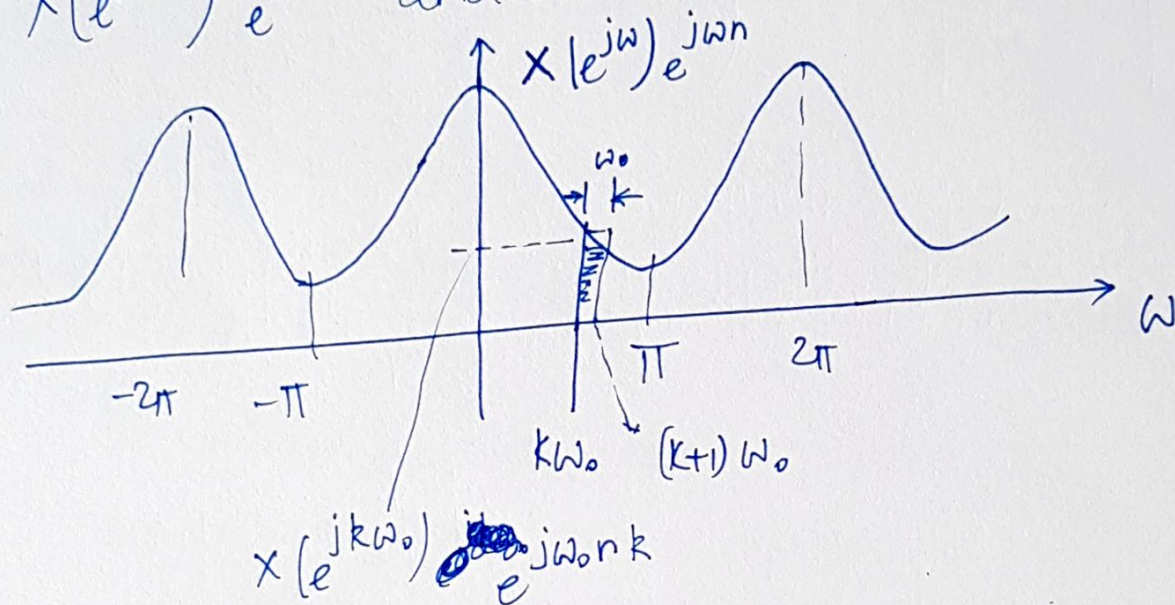 X(e ) e
X(e^{jω})e^{jωn}
ω₀
ω
-2π -π π 2π
kω₀ (k+1)ω₀
X(e^{jkω₀}) e^{jω₀nk}